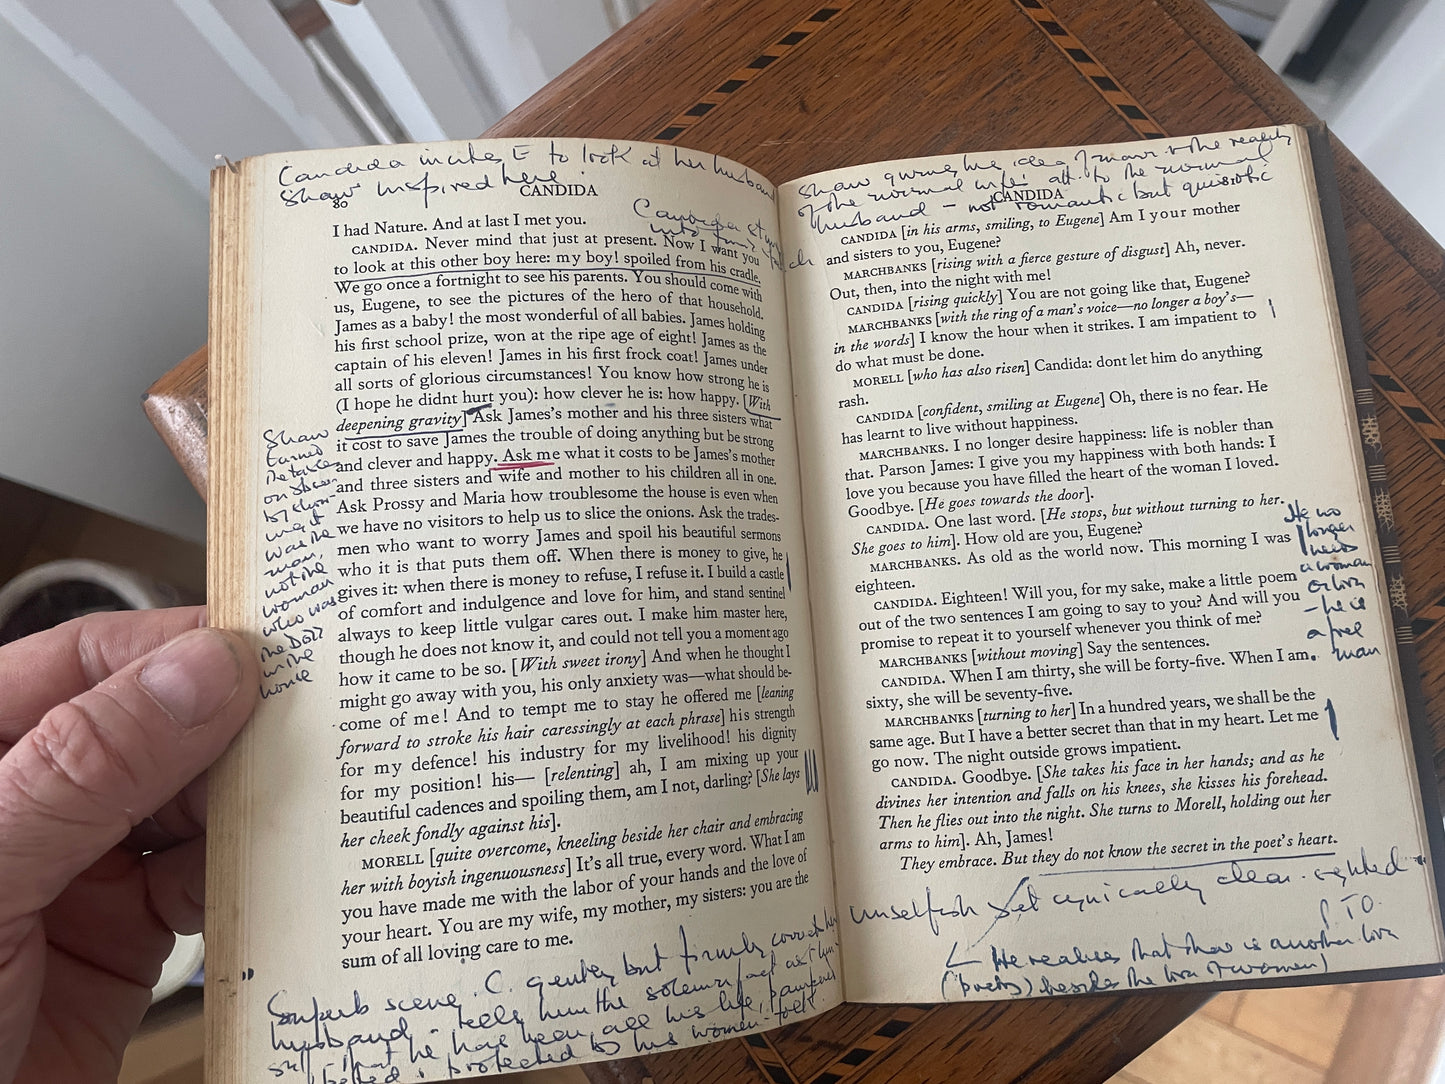 Candida invites E to look at her husband
Shaw inspired here
80
CANDIDA
I had Nature. And at last I met you.
CANDIDA. Never mind that just at present. Now I want you
to look at this other boy here: my boy! spoiled from his cradle.
We go once a fortnight to see his parents. You should come with
us, Eugene, to see the pictures of the hero of that household.
James as a baby! the most wonderful of all babies. James holding
his first school prize, won at the ripe age of eight! James as the
captain of his eleven! James in his first frock coat! James under
all sorts of glorious circumstances! You know how strong he is
(I hope he didnt hurt you): how clever he is: how happy. [With
deepening gravity] Ask James's mother and his three sisters what
it cost to save James the trouble of doing anything but be strong
and clever and happy. Ask me what it costs to be James's mother
and three sisters and wife and mother to his children all in one.
Ask Prossy and Maria how troublesome the house is even when
we have no visitors to help us to slice the onions. Ask the trades-
men who want to worry James and spoil his beautiful sermons
who it is that puts them off. When there is money to give, he
gives it: when there is money to refuse, I refuse it. I build a castle
of comfort and indulgence and love for him, and stand sentinel
always to keep little vulgar cares out. I make him master here,
though he does not know it, and could not tell you a moment ago
how it came to be so. [With sweet irony] And when he thought I
might go away with you, his only anxiety was—what should be-
come of me! And to tempt me to stay he offered me [leaning
forward to stroke his hair caressingly at each phrase] his strength
for my defence! his industry for my livelihood! his dignity
for my position! his— [relenting] ah, I am mixing up your
beautiful cadences and spoiling them, am I not, darling? [She lays
her cheek fondly against his].
MORELL [quite overcome, kneeling beside her chair and embracing
her with boyish ingenuousness] It's all true, every word. What I am
you have made me with the labor of your hands and the love of
your heart. You are my wife, my mother, my sisters: you are the
sum of all loving care to me.
Shaw
turned
the tables
on
by show-
ing it
was the
man,
not the
woman
who was
the doll
in the
house
Superb scene. C. gently but firmly corrects her
husband - tells him the solemn fact as to him-
self that he has been all his life pampered
petted & protected by his women-folk
Shaw giving his idea of man & the reality
of the normal wife's att. to the normal
husband - not romantic but quixotic
CANDIDA
CANDIDA [in his arms, smiling, to Eugene] Am I your mother
and sisters to you, Eugene?
MARCHBANKS [rising with a fierce gesture of disgust] Ah, never.
Out, then, into the night with me!
CANDIDA [rising quickly] You are not going like that, Eugene?
MARCHBANKS [with the ring of a man's voice—no longer a boy's—
in the words] I know the hour when it strikes. I am impatient to
do what must be done.
MORELL [who has also risen] Candida: dont let him do anything
rash.
CANDIDA [confident, smiling at Eugene] Oh, there is no fear. He
has learnt to live without happiness.
MARCHBANKS. I no longer desire happiness: life is nobler than
that. Parson James: I give you my happiness with both hands: I
love you because you have filled the heart of the woman I loved.
Goodbye. [He goes towards the door].
CANDIDA. One last word. [He stops, but without turning to her.
She goes to him]. How old are you, Eugene?
MARCHBANKS. As old as the world now. This morning I was
eighteen.
CANDIDA. Eighteen! Will you, for my sake, make a little poem
out of the two sentences I am going to say to you? And will you
promise to repeat it to yourself whenever you think of me?
MARCHBANKS [without moving] Say the sentences.
CANDIDA. When I am thirty, she will be forty-five. When I am
sixty, she will be seventy-five.
MARCHBANKS [turning to her] In a hundred years, we shall be the
same age. But I have a better secret than that in my heart. Let me
go now. The night outside grows impatient.
CANDIDA. Goodbye. [She takes his face in her hands; and as he
divines her intention and falls on his knees, she kisses his forehead.
Then he flies out into the night. She turns to Morell, holding out her
arms to him]. Ah, James!
They embrace. But they do not know the secret in the poet's heart.
He no
longer
needs
a woman
or love
- he is
a free
man
unselfish yet cynically clear-sighted
PTO.
He realises that there is another love
(poetry) besides the love of women)